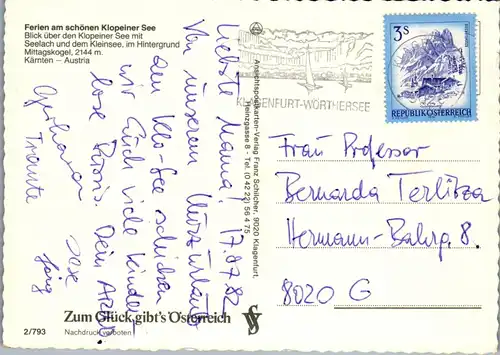 Ferien am schönen Klopeiner See
Blick über den Klopeiner See mit
Seelach und dem Kleinsee, im Hintergrund
Mittagskogel, 2144 m.
Kärnten – Austria
Liebste Mama! 17.07.82
Von unserem Kurzurlaub
am Klo-See schicken
wir Euch viele
Bussis. Dein
Gerhard
Traute
Jörg
Ansichtspostkarten-Verlag Franz Schilcher, 9020 Klagenfurt,
Heinzgasse 8 - Tel. (0 42 22) 56 4 75
KLAGENFURT-WÖRTHERSEE
3S
REPUBLIK ÖSTERREICH
Frau Professor
Bernarda Terlitza
Hermann-Bahrg. 8.
8020 G
Zum Glück gibt's Österreich
2/793
Nachdruck verboten